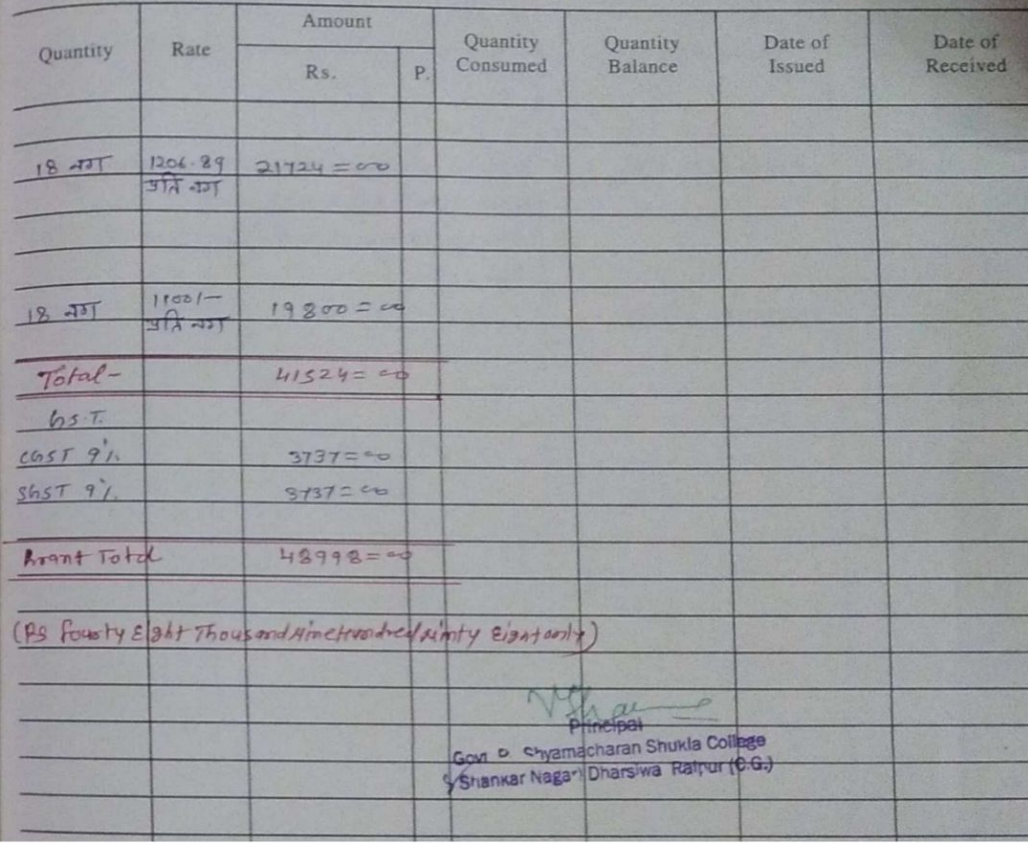 Quantity Rate Amount Quantity Consumed Quantity Balance Date of Issued Date of Received
Rs. P.
18 नग 1206.89 21724=00
प्रति नग
18 नग 1100/- 19800=00
प्रति नग
Total- 41524=00
G.S.T.
CGST 9% 3737=00
SGST 9% 3737=00
Grant Total 48998=00
(RS Fourty Eight Thousand Nine Hundred Ninty Eight only)
Principal
Govt D Shyamacharan Shukla College
Shankar Nagar Dharsiwa Raipur (C.G.)